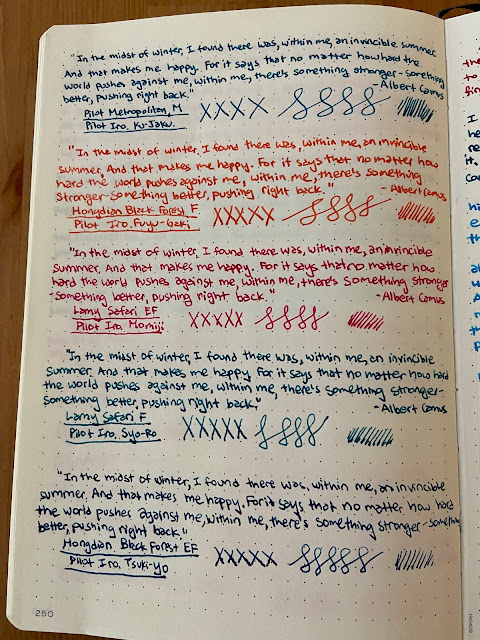 "In the midst of winter, I found there was, within me, an invincible summer.
And that makes me happy. For it says that no matter how hard the
world pushes against me, within me, there's something stronger - something
better, pushing right back."
- Albert Camus
Pilot Metropolitan, M
Pilot Iro. Ku-Jaku.
"In the midst of winter, I found there was, within me, an invincible
summer. And that makes me happy. For it says that no matter how
hard the world pushes against me, within me, there's something
stronger - something better, pushing right back."
- Albert Camus
Hongdian Black Forest F
Pilot Iro. Fuyu-Gaki
"In the midst of winter, I found there was, within me, an invincible
summer. And that makes me happy. For it says that no matter how
hard the world pushes against me, within me, there's something stronger
- something better, pushing right back."
- Albert Camus
Lamy Safari EF
Pilot Iro. Momiji
"In the midst of winter, I found there was, within me, an invincible
summer. And that makes me happy. For it says that no matter how hard
the world pushes against me, within me, there's something stronger -
something better, pushing right back."
- Albert Camus
Lamy Safari F
Pilot Iro. Syo-Ro
"In the midst of winter, I found there was, within me, an invincible
summer. And that makes me happy. For it says that no matter how hard
the world pushes against me, within me, there's something stronger - something
better, pushing right back."
Hongdian Black Forest EF
Pilot Iro. Tsuki-yo
250